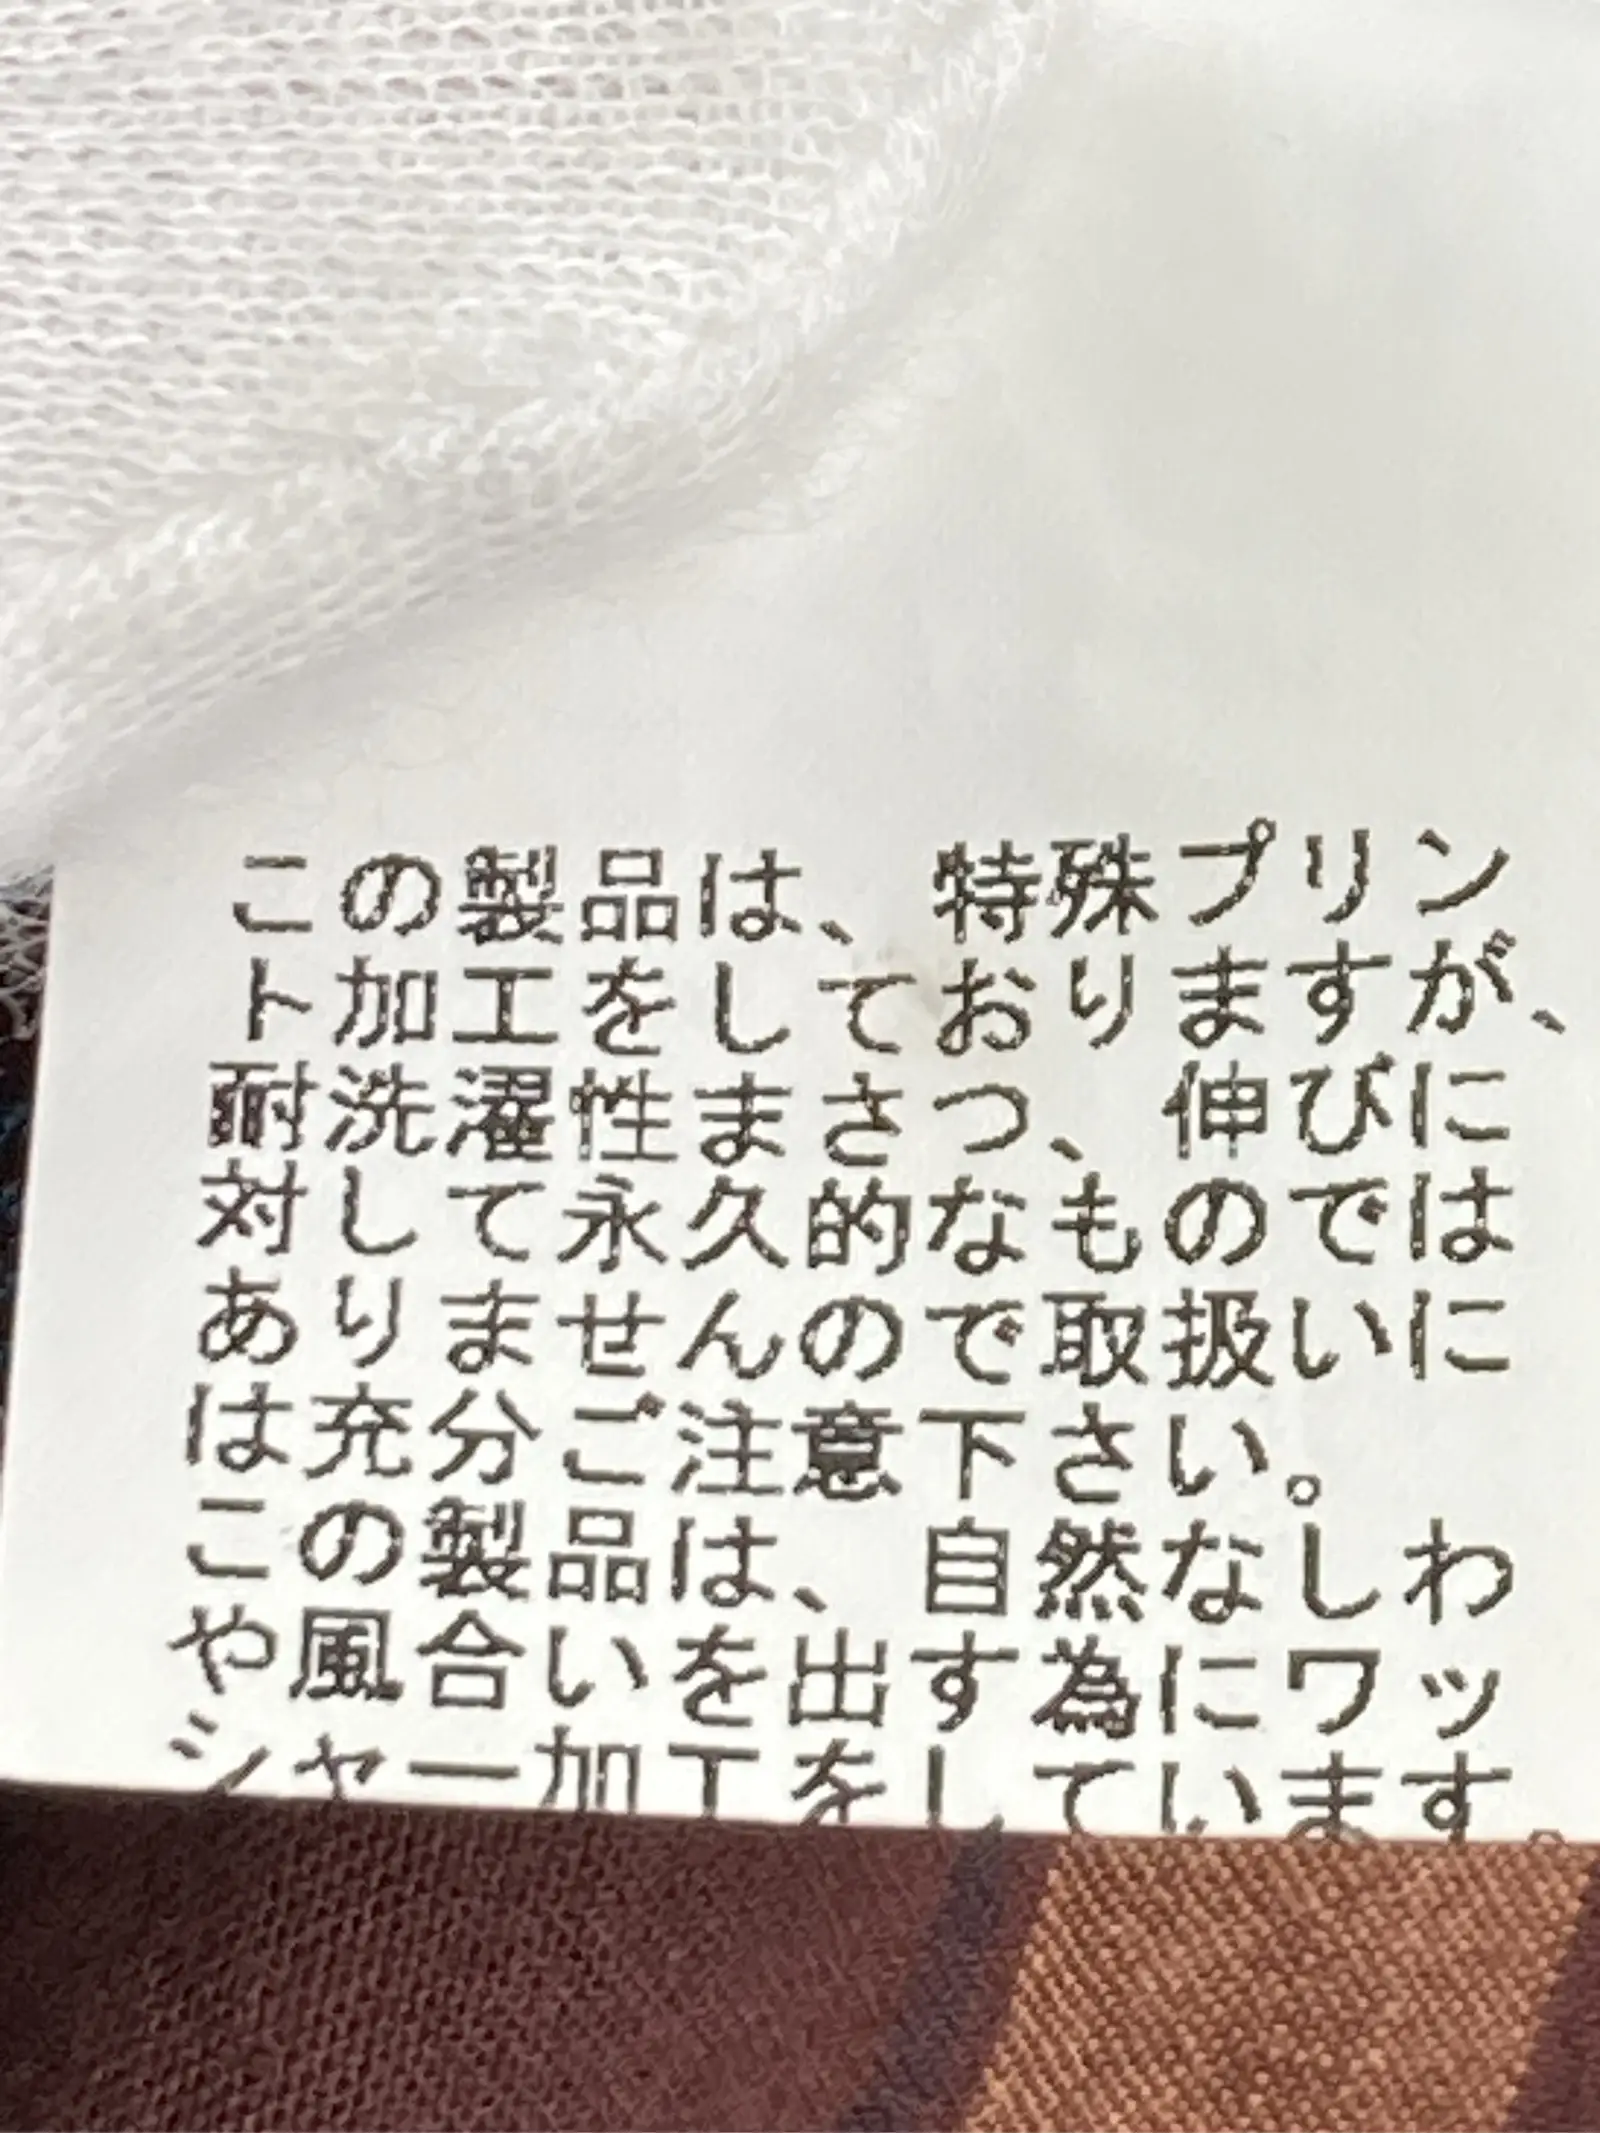 この製品は、特殊プリン
ト加工をしておりますが、
耐洗濯性まさつ、伸びに
対して永久的なものでは
ありませんので取扱いに
は充分ご注意下さい。
この製品は、自然なしわ
や風合いを出す為にワッ
シャー加工をしています。